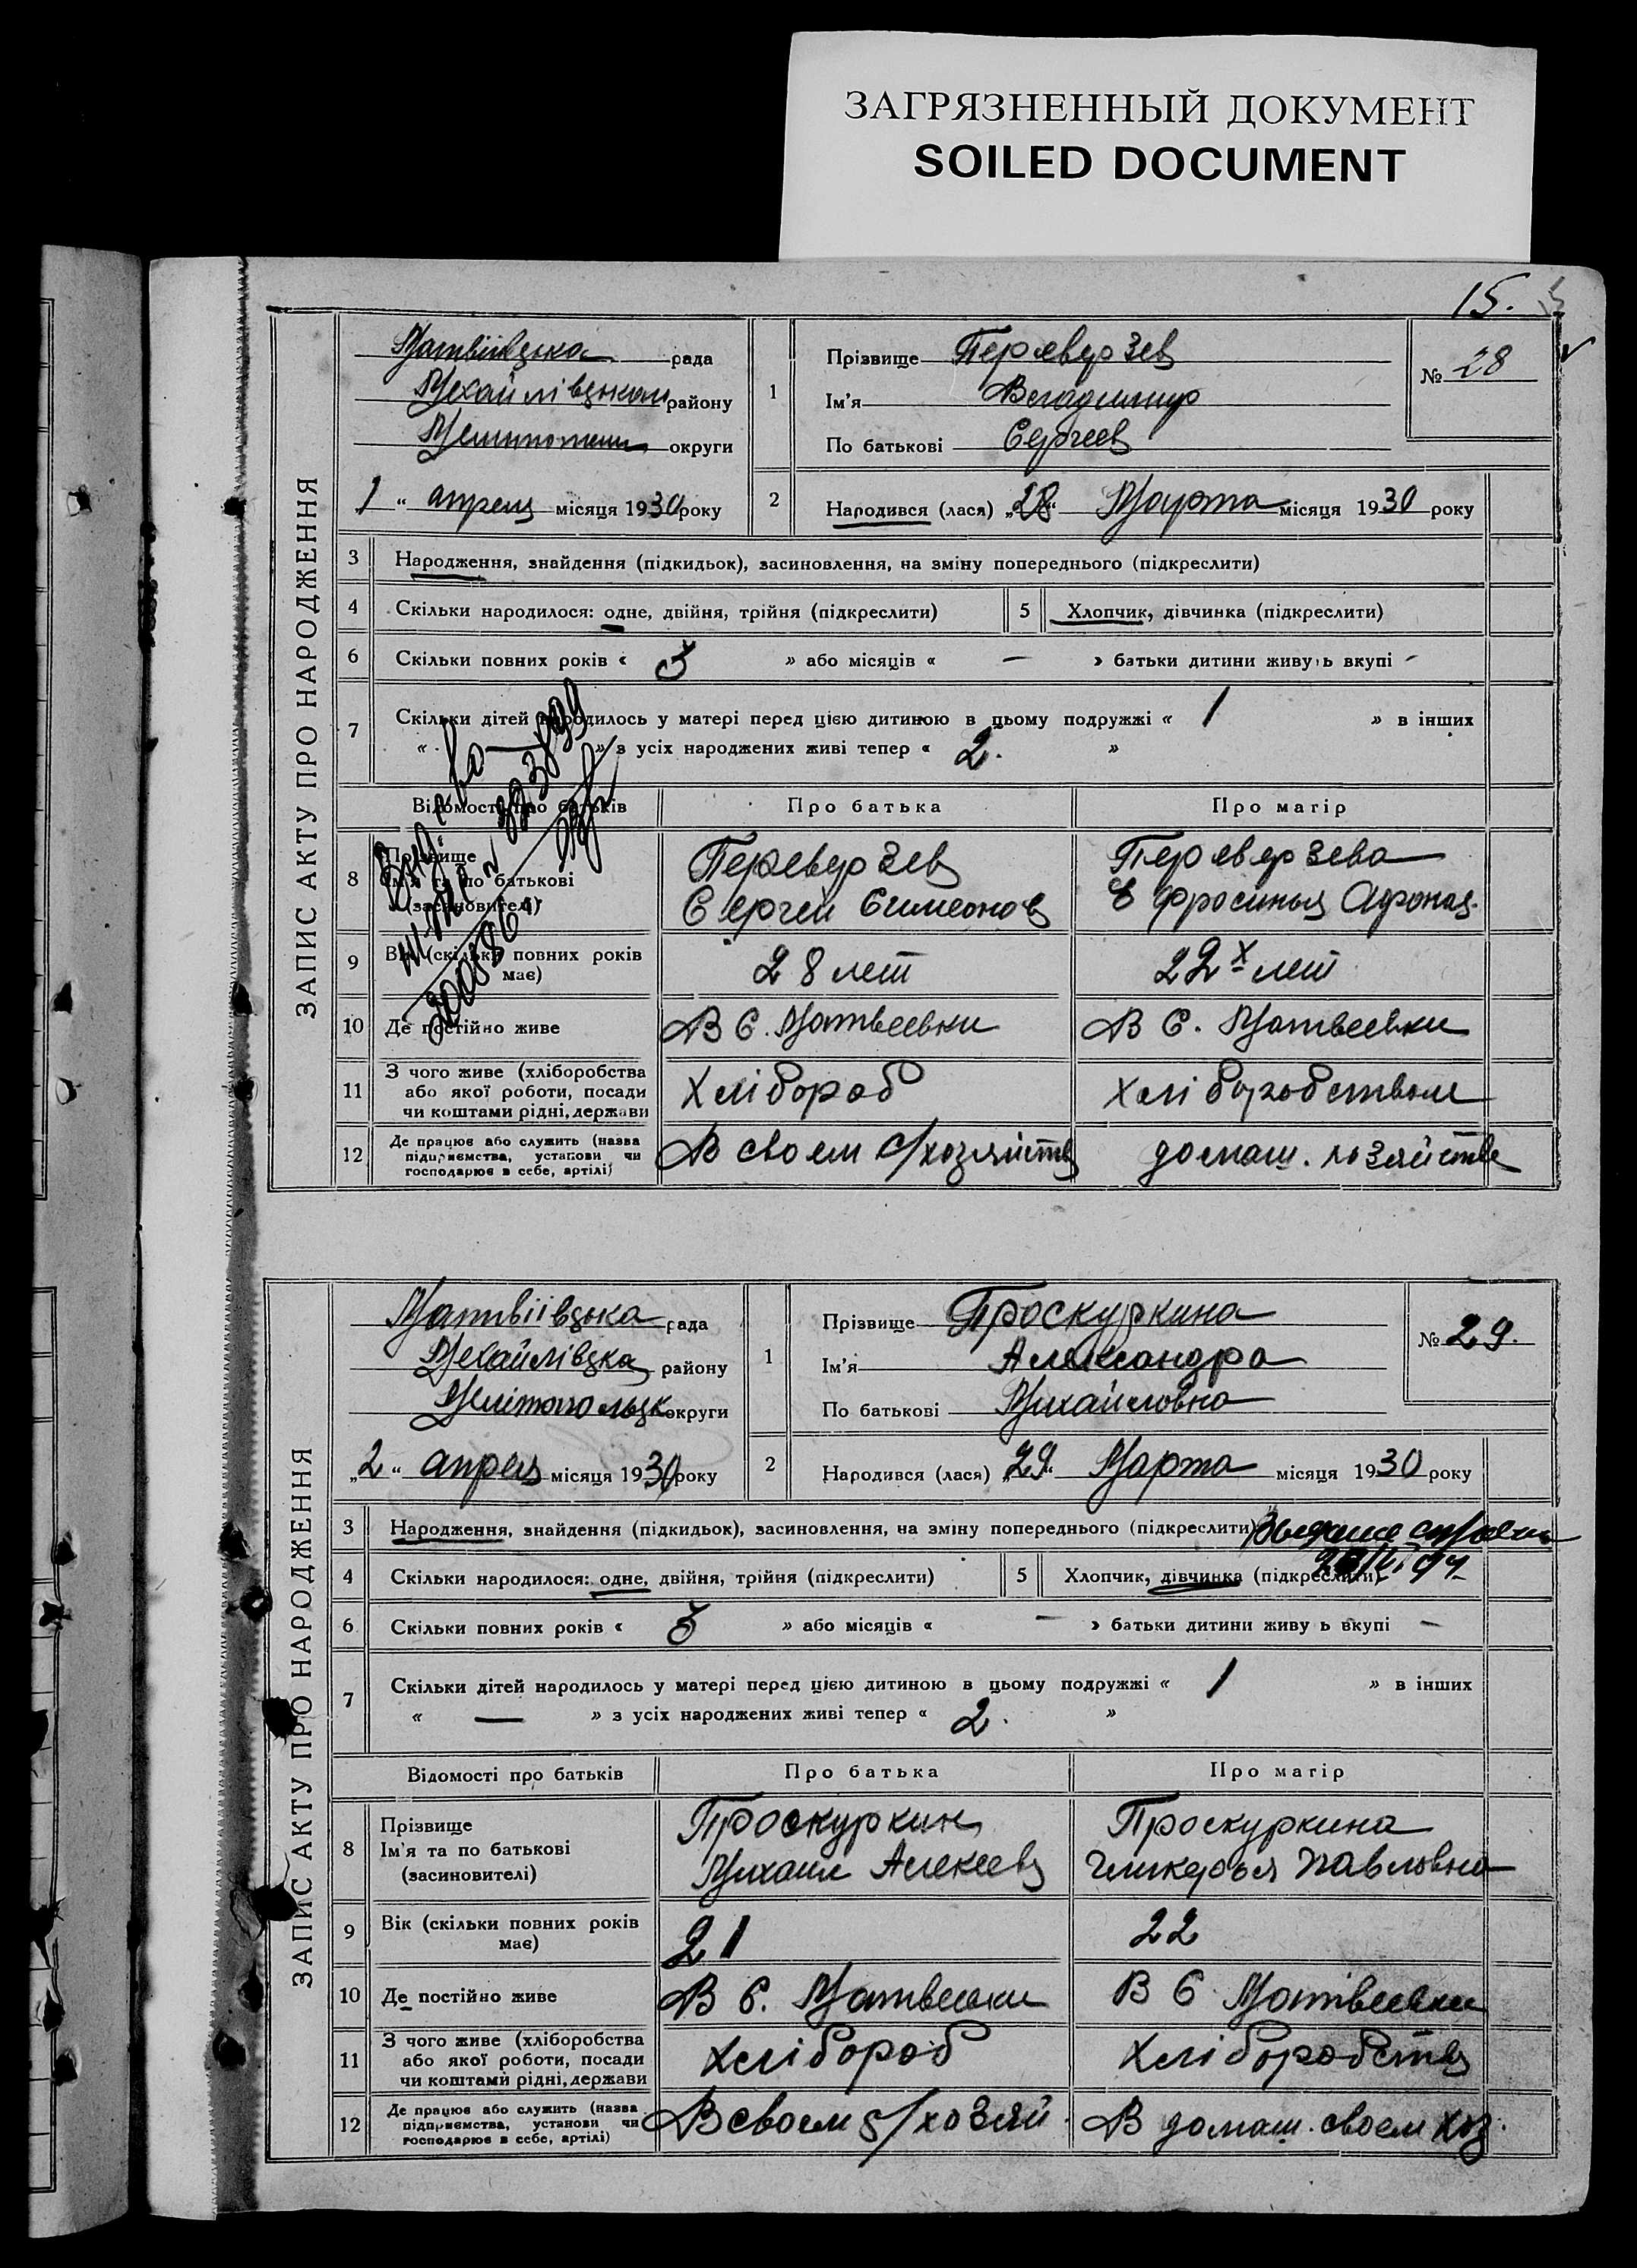 ЗАГРЯЗНЕННЫЙ ДОКУМЕНТ
SOILED DOCUMENT
15.
ЗАПИС АКТУ ПРО НАРОДЖЕННЯ
Матвіівцька рада
Мехайлівцькаи району
округи
1 “ апреля місяця 1930 року
1 Прізвище Перевер Зев
Ім’я Владимир
По батькові Сергеев
№ 28
2 Народився (лася) „28“ Марта місяця 1930 року
3 Народження, знайдення (підкидьок), засиновлення, на зміну попереднього (підкреслити)
4 Скільки народилося: одне, двійня, трійня (підкреслити) 5 Хлопчик, дівчинка (підкреслити)
6 Скільки повних років « 3 » або місяців « — » батьки дитини живуть вкупі —
7 Скільки дітей народилось у матері перед цією дитиною в цьому подружжі « 1 » в інших
« — » з усіх народжених живі тепер « 2. »
Відомості про батьків Про батька Про матір
8 Прізвище Перевер Зев Перевер Зева
Ім’я та по батькові Сергей Симеонов Ефросинья Афонас.
(засиновителі)
9 Вік (скільки повних років 28 лет 22х лет
має)
10 Де постійно живе В С. Матвеевки В С. Матвеевки
11 З чого живе (хліборобства Хлібороб Хліборобством
або якої роботи, посади
чи коштами рідні, держави
12 Де працює або служить (назва В своем с/хозяйств домаш. хозяйстве
підприємства, установи чи
господарює в себе, артілі)
ЗАПИС АКТУ ПРО НАРОДЖЕННЯ
Матвіівцька рада
Мехайлівцка району
Мелітопольцк округи
„2 “ апреля місяця 1930 року
1 Прізвище Проскуркина
Ім’я Александра
По батькові Михайловна
№ 29.
2 Народився (лася) 29“ Марта місяця 1930 року
3 Народження, знайдення (підкидьок), засиновлення, на зміну попереднього (підкреслити)
4 Скільки народилося: одне, двійня, трійня (підкреслити) 5 Хлопчик, дівчинка (підкреслити)
6 Скільки повних років « 3 » або місяців « — » батьки дитини живуть вкупі —
7 Скільки дітей народилось у матері перед цією дитиною в цьому подружжі « 1 » в інших
« — » з усіх народжених живі тепер « 2. »
Відомості про батьків Про батька Про матір
8 Прізвище Проскуркин Проскуркина
Ім’я та по батькові Михаил Алексеев Гликерья Павловна
(засиновителі)
9 Вік (скільки повних років 21 22
має)
10 Де постійно живе В С. Матвеевки В С Матвеевки
11 З чого живе (хліборобства Хлібороб Хліборобств
або якої роботи, посади
чи коштами рідні, держави
12 Де працює або служить (назва В своем с/хозяй. В домаш. своем хоз.
підприємства, установи чи
господарює в себе, артілі)